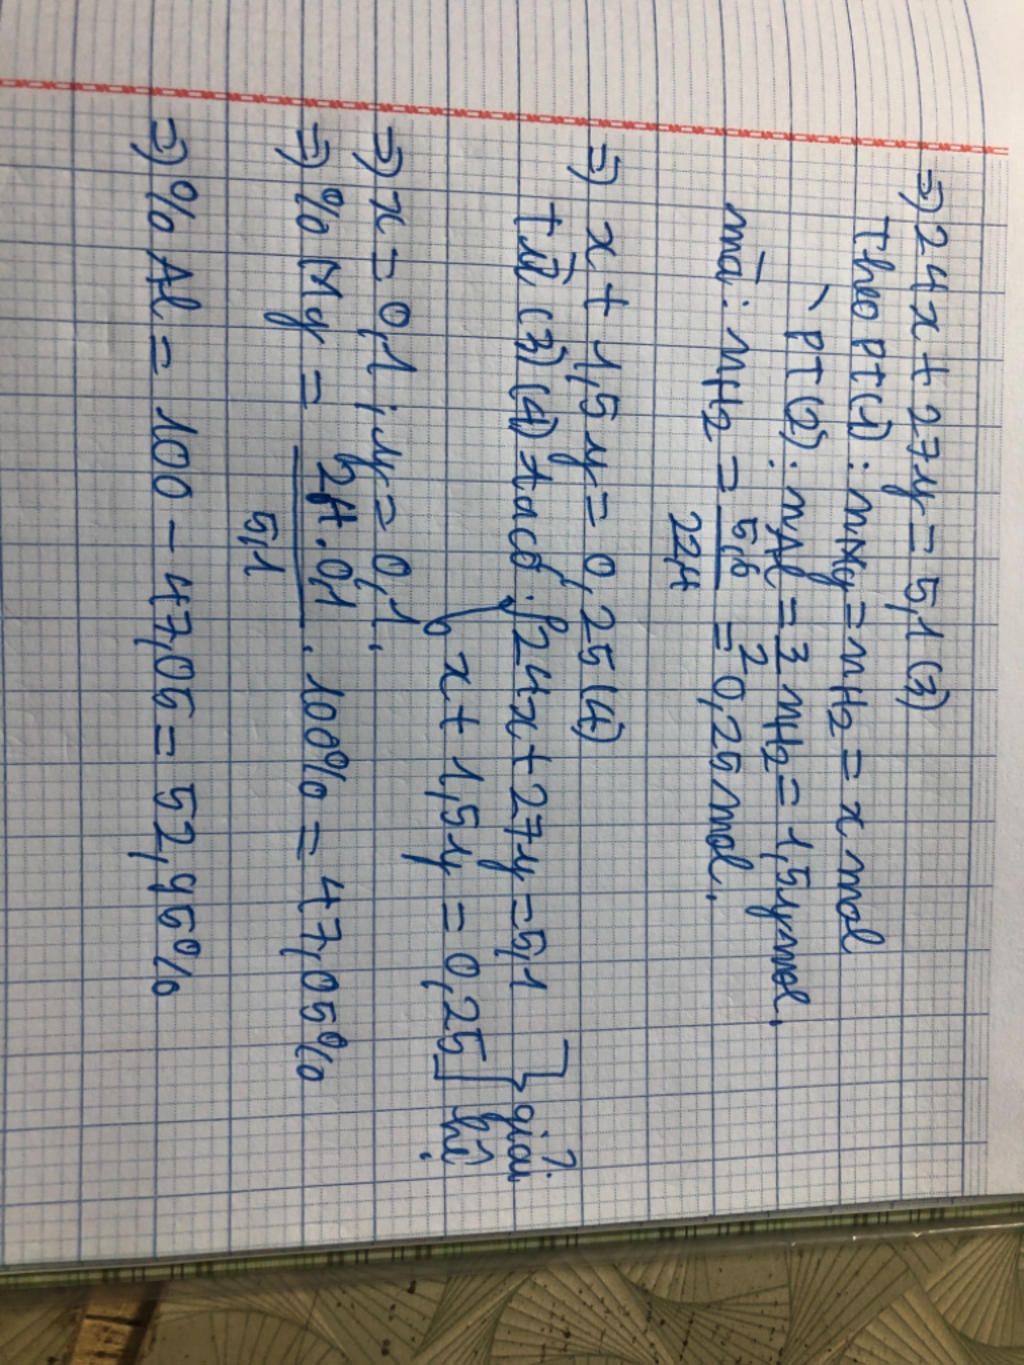 => 24x + 27y = 5,1 (3)
Theo PT(1) : nMg = nH2 = x mol
` PT(2) : nAl = 3/2 nH2 = 1,5y mol.
mà : nH2 = 5,6/22,4 = 0,25 mol.
=> x + 1,5y = 0,25 (4)
Từ (3) (4) ta có : { 24x + 27y = 5,1 } giải
x + 1,5y = 0,25 } hệ
=> x = 0,1 ; y = 0,1.
=> % Mg = 24.0,1/5,1 . 100% = 47,05%
=> % Al = 100 - 47,05 = 52,95%